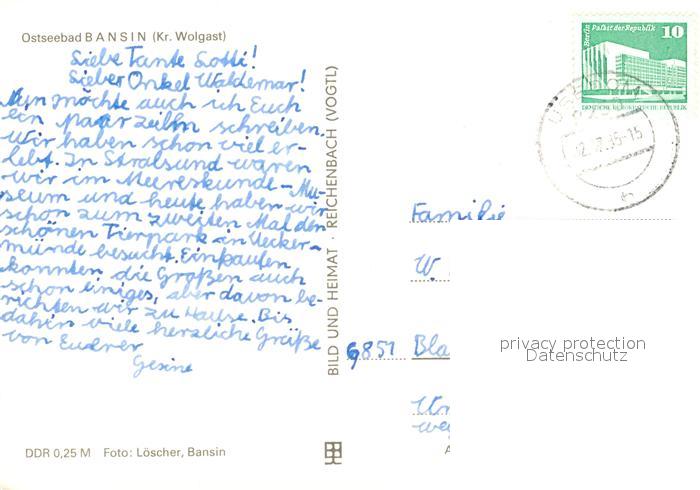 Ostseebad BANSIN (Kr. Wolgast)
Liebe Tante Lotti!
Lieber Onkel Waldemar!
Nun möchte auch ich Euch
ein paar zeiln schreiben.
Wir haben schon viel er-
lebt. In Stralsund waren
wir im Meereskunde-Mu-
seum und heute haben wir
schon zum zweiten Mal den
schönen Tierpark in Uecker-
münde besucht. Einkaufen
konnten die Großen auch
schon einiges, aber davon be-
richten wir zu Hause. Bis
dahin viele herzliche Grüße
von Eurer
Gesine
DDR 0,25 M Foto: Löscher, Bansin
BILD UND HEIMAT · REICHENBACH (VOGTL)
Berlin Palast der Republik 10
DEUTSCHE DEMOKRATISCHE REPUBLIK
USEDOM
Familie
W.
6851 Bla
privacy protection
Datenschutz